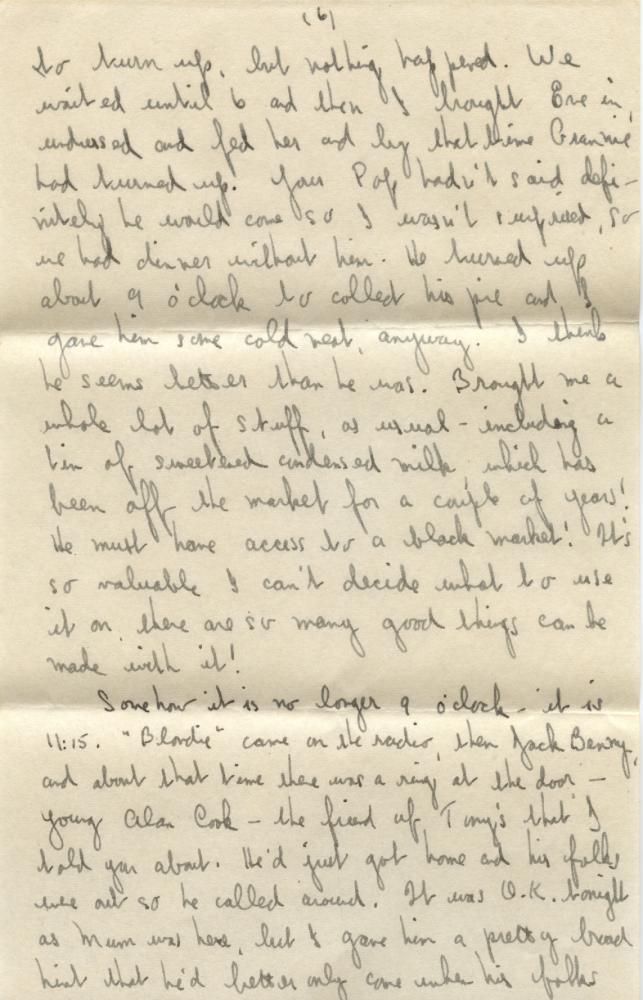 (6)
to turn up, but nothing happened. We
waited until 6 and then I brought Eve in,
undressed and fed her and by that time Grannie
had turned up. Your Pop hadn't said defi-
nitely he would come so I wasn't surprised, so
we had dinner without him. He turned up
about 9 o'clock to collect his pie and I
gave him some cold meat, anyway. I think
he seems better than he was. Brought me a
whole lot of stuff, as usual - including a
tin of sweetened condensed milk which has
been off the market for a couple of years!
He must have access to a black market! It's
so valuable I can't decide what to use
it on, there are so many good things can be
made with it!
Somehow it is no longer 9 o'clock - it is
11:15. "Blondie" came on the radio, then Jack Benny,
and about that time there was a ring at the door -
young Alan Cook - the friend of Tony's that I
told you about. He'd just got home and his folks
were out so he called around. It was O.K. tonight
as Mum was here, but I gave him a pretty broad
hint that he'd better only come when his folks